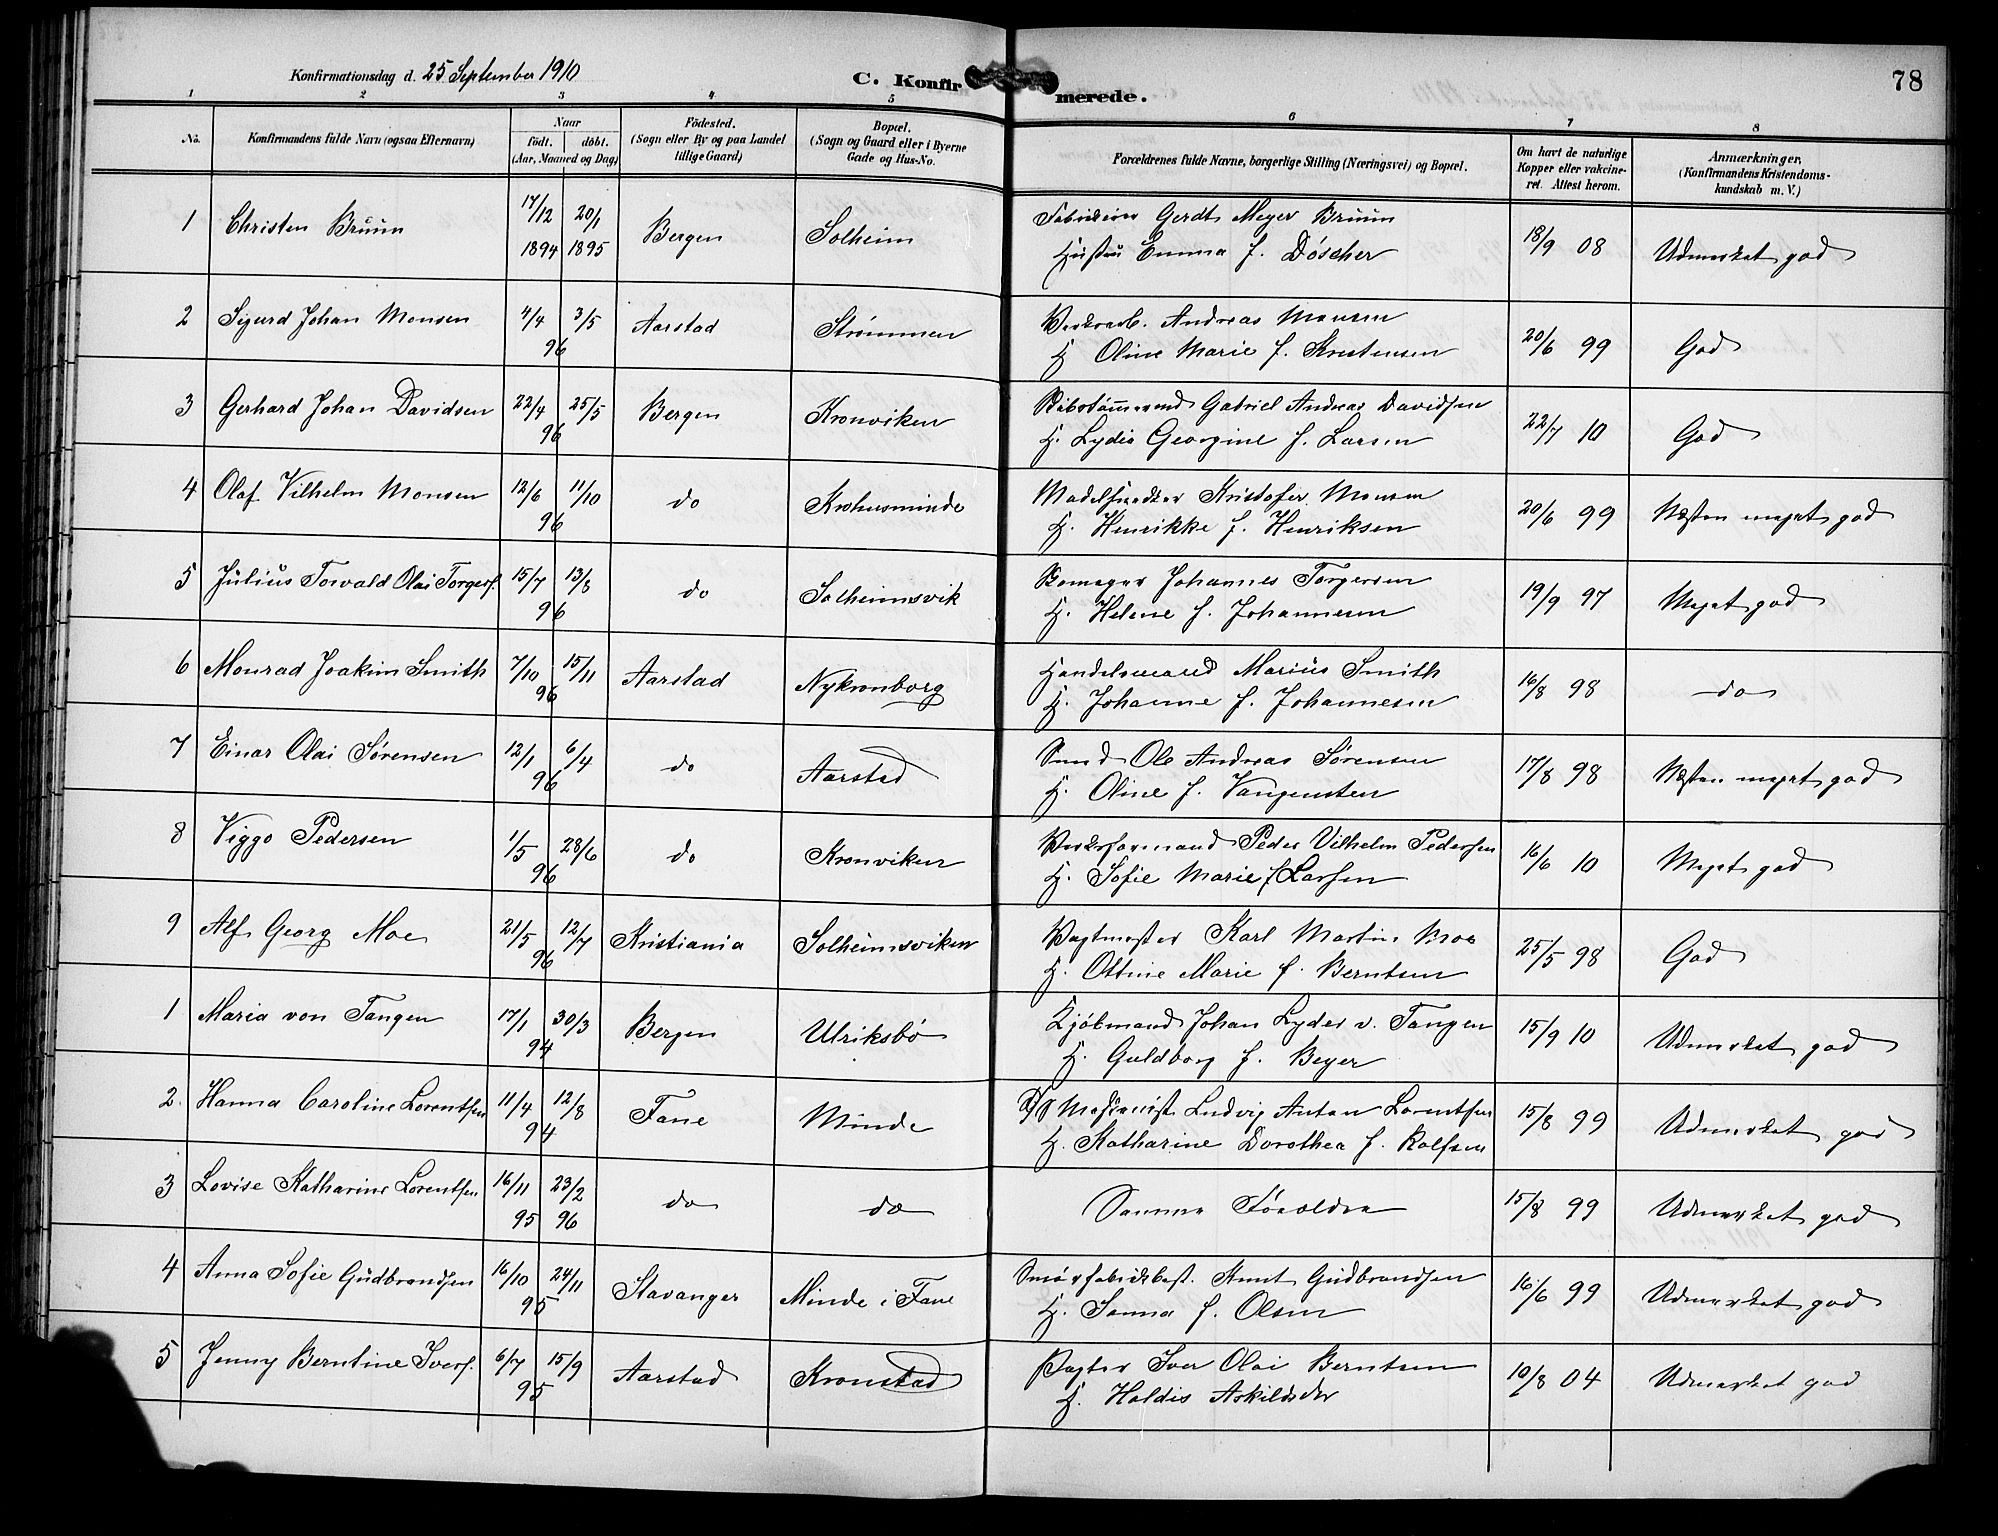 Konfirmationsdag d. 25 September 1910
C. Konfirmerede.
78
1 2 3 4 5 6 7 8
No. Konfirmandens fulde Navn (ogsaa Efternavn) Naar født. døbt. (Aar, Maaned og Dag) Fødested. (Sogn eller By og paa Landet tillige Gaard) Bopæl. (Sogn og Gaard eller i Byerne Gade og Hus-No. Forældrenes fulde Navne, borgerlige Stilling (Næringsvei) og Bopæl. Om havt de naturlige Kopper eller vakcineret. Attest herom. Anmærkninger, (Konfirmandens Kristendomskundskab m. V.)
1 Christen Bruun 17/12 1894 20/1 1895 Bergen Solheim Gerdt Meyer Bruun 18/9 08 Udmerket god
Hustru Emma f. Döscher
2 Sigurd Johan Monsen 4/4 3/5 96 Aarstad Strømmen Verksarb. Andreas Monsen 20/6 99 God
H. Oline Marie f. Kristensen
3 Gerhard Johan Davidsen 22/4 25/5 96 Bergen Kronviken Skibstømmermd Gabriel Andreas Davidsen 22/7 10 God
H. Lydia Georgine f. Larsen
4 Olaf Vilhelm Monsen 12/6 11/10 96 do Krohusminde Modelsnedker Kristofer Monsen 20/6 99 Næsten meget god
H. Henrikke f. Henriksen
5 Julius Torvald Olai Torgers. 15/7 13/8 96 do Solheimsvik Johannes Torgersen 19/9 97 Meget god
H. Helene f. Johannesen
6 Monrad Joakim Smith 7/10 15/11 96 Aarstad Nykronborg Handelsmand Marius Smith 16/8 98 do
H. Johanne f. Johannesen
7 Einar Olai Sørensen 12/1 6/4 96 do Aarstad Smed Ole Andreas Sørensen 17/8 98 Næsten meget god
H. Oline f. Vangensten
8 Viggo Pedersen 1/5 28/6 96 do Kronviken Verksformand Peder Vilhelm Pedersen 16/6 10 Meget god
H. Sofie Marie f. Larsen
9 Alf Georg Moe 21/5 12/7 96 Kristiania Solheimsviken Vagtmester Karl Martin Moe 25/5 98 God
H. Ottine Marie f. Berntsen
1 Maria von Tangen 17/1 30/3 94 Bergen Ulriksbø Kjøbmand Johan Lyder v. Tangen 15/9 10 Udmerket god
H. Guldborg f. Beyer
2. Hanna Caroline Lorentsen 11/4 12/8 94 Fane Minde Maskinist Ludvig Anton Lorentsen 15/8 99 Udmerket god
H. Katharine Dorothea f. Rolfsen
3 Lovise Katharine Lorentsen 16/11 95 23/2 96 do do Samme Forældre 15/8 99 Udmerket god
4 Anna Sofie Gudbrandsen 16/10 24/11 95 Stavanger Minde i Fane Smørfabrikbest. Amt Gudbrandsen 16/6 99 Udmerket god
H. Sanna f. Olsen
5 Jenny Berntine Ivers. 6/7 15/9 95 Aarstad Kronstad Vagter Iver Olai Berntsen 10/8 04 Udmerket god
H. Haldis Askildsdtr